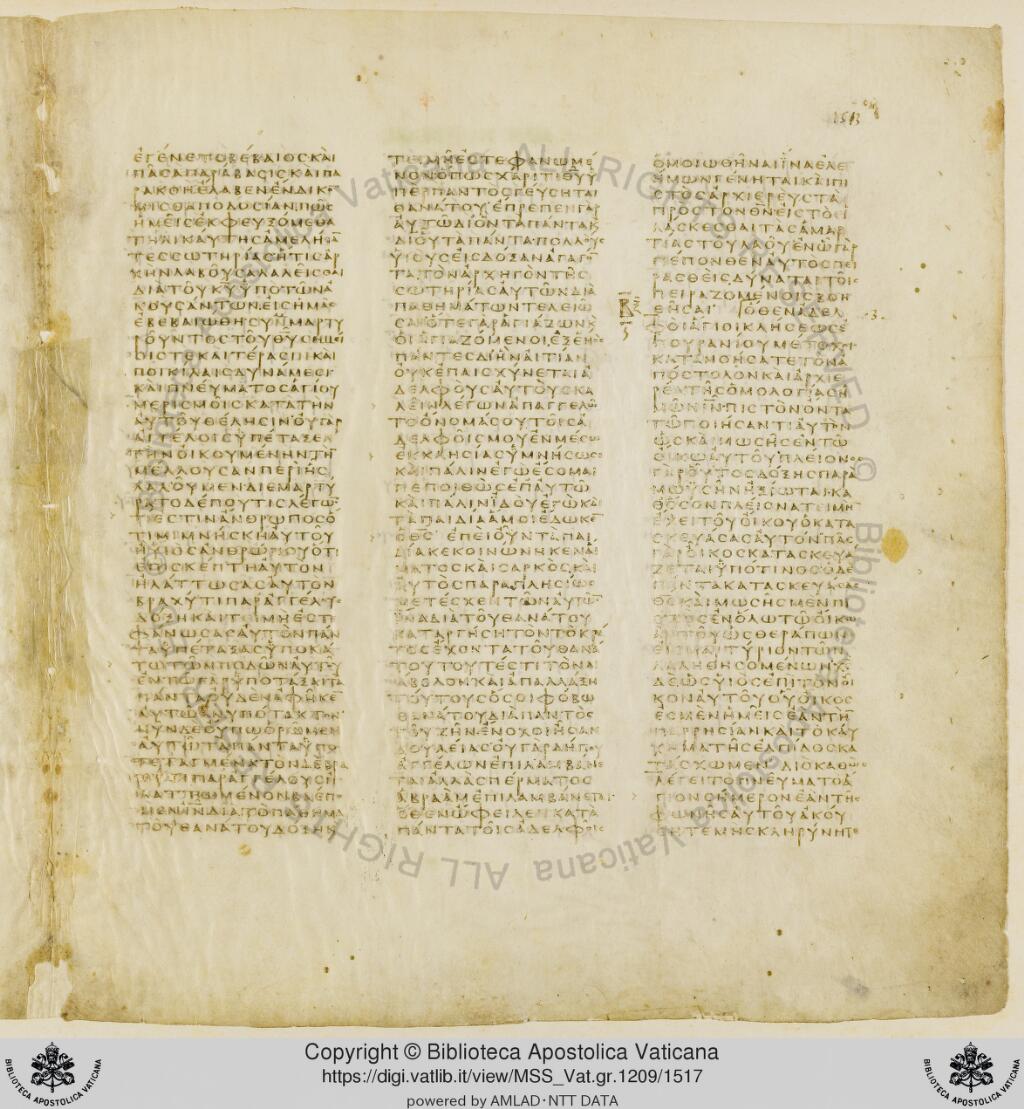 ΕΓΕΝΕΤΟΒΕΒΑΙΟϹΚΑΙ
ΠΑϹΑΠΑΡΑΒΑϹΙϹΚΑΙΠΑ
ΡΑΚΟΗΕΛΑΒΕΝΕΝΔΙΚΟ
ΜΙϹΘΑΠΟΔΟϹΙΑΝΠΩϹ
ΗΜΕΙϹΕΚΦΕΥΞΟΜΕΘΑ
ΤΗΛΙΚΑΥΤΗϹΑΜΕΛΗϹΑ
ΤΕϹϹΩΤΗΡΙΑϹΗΤΙϹΑΡ
ΧΗΝΛΑΒΟΥϹΑΛΑΛΕΙϹΘΑΙ
ΔΙΑΤΟΥΚΥΥΠΟΤΩΝΑ
ΚΟΥϹΑΝΤΩΝΕΙϹΗΜΑϹ
ΕΒΕΒΑΙΩΘΗϹΥΝΜΑΡΤΥ
ΡΟΥΝΤΟϹΤΟΥΘΥϹΗΜΕΙ
ΟΙϹΤΕΚΑΙΤΕΡΑϹΙΝΚΑΙ
ΠΟΙΚΙΛΑΙϹΔΥΝΑΜΕϹΙ
ΚΑΙΠΝΕΥΜΑΤΟϹΑΓΙΟΥ
ΜΕΡΙϹΜΟΙϹΚΑΤΑΤΗΝ
ΑΥΤΟΥΘΕΛΗϹΙΝΟΥΓΑΡ
ΑΓΓΕΛΟΙϹΥΠΕΤΑΞΕ
ΤΗΝΟΙΚΟΥΜΕΝΗΝΤΗ̅
ΜΕΛΛΟΥϹΑΝΠΕΡΙΗϹ
ΛΑΛΟΥΜΕΝΔΙΕΜΑΡΤΥ
ΡΑΤΟΔΕΠΟΥΤΙϹΛΕΓΩ̅
ΤΙΕϹΤΙΝΑΝΘΡΩΠΟϹΟ
ΤΙΜΙΜΝΗϹΚΗΑΥΤΟΥ
ΗΥΙΟϹΑΝΘΡΩΠΟΥΟΤΙ
ΕΠΙϹΚΕΠΤΗΑΥΤΟΝ
ΗΛΑΤΤΩϹΑϹΑΥΤΟΝ
ΒΡΑΧΥΤΙΠΑΡΑΓΓΕΛΟΥϹ
ΔΟΞΗΚΑΙΤΕΙΜΗΕϹΤΕ
ΦΑΝΩϹΑϹΑΥΤΟΝΠΑΝ
ΤΑΥΠΕΤΑΞΑϹΥΠΟΚΑ
ΤΩΤΩΝΠΟΔΩΝΑΥΤΟΥ
ΕΝΤΩΓΑΡΥΠΟΤΑΞΑΙΤΑ
ΠΑΝΤΑΟΥΔΕΝΑΦΗΚΕ
ΑΥΤΩΑΝΥΠΟΤΑΚΤΟΝ
ΝΥΝΔΕΟΥΠΩΟΡΩΜΕΝ
ΑΥΤΩΤΑΠΑΝΤΑΥΠΟ
ΤΕΤΑΓΜΕΝΑΤΟΝΔΕΒΡΑ
ΧΥΤΙΠΑΡΑΓΓΕΛΟΥϹΗ
ΛΑΤΤΩΜΕΝΟΝΒΛΕΠΟ
ΜΕΝΙΝΔΙΑΤΟΠΑΘΗΜΑ
ΤΟΥΘΑΝΑΤΟΥΔΟΞΗΚ
ΤΕΙΜΗΕϹΤΕΦΑΝΩΜΕ
ΝΟΝΟΠΩϹΧΑΡΙΤΙΘΥΥ
ΠΕΡΠΑΝΤΟϹΓΕΥϹΗΤΑΙ
ΘΑΝΑΤΟΥΕΠΡΕΠΕΝΓΑΡ
ΑΥΤΩΔΙΟΝΤΑΠΑΝΤΑΚ
ΔΙΟΥΤΑΠΑΝΤΑΠΟΛΛΟΥϹ
ΥΙΟΥϹΕΙϹΔΟΞΑΝΑΓΑΓΟ
ΤΑΤΟΝΑΡΧΗΓΟΝΤΗϹ
ϹΩΤΗΡΙΑϹΑΥΤΩΝΔΙΑ
ΠΑΘΗΜΑΤΩΝΤΕΛΕΙΩ
ϹΑΙΟΤΕΓΑΡΑΓΙΑΖΩΝΚ
ΟΙΑΓΙΑΖΟΜΕΝΟΙΕΞΕΝΟϹ
ΠΑΝΤΕϹΔΙΗΝΑΙΤΙΑΝ
ΟΥΚΕΠΑΙϹΧΥΝΕΤΑΙΑ
ΔΕΛΦΟΥϹΑΥΤΟΥϹΚΑ
ΛΕΙΝΛΕΓΩΝΑΠΑΓΓΕΛΩ
ΤΟΟΝΟΜΑϹΟΥΤΟΙϹΑ
ΔΕΛΦΟΙϹΜΟΥΕΝΜΕϹΩ
ΕΚΚΛΗϹΙΑϹΥΜΝΗϹΩϹΕ
ΚΑΙΠΑΛΙΝΕΓΩΕϹΟΜΑΙ
ΠΕΠΟΙΘΩϹΕΠΑΥΤΩ
ΚΑΙΠΑΛΙΝΙΔΟΥΕΓΩΚΑΙ
ΤΑΠΑΙΔΙΑΑΜΟΙΕΔΩΚΕ
ΟΘϹΕΠΕΙΟΥΝΤΑΠΑΙ
ΔΙΑΚΕΚΟΙΝΩΝΗΚΕΝΑΙ
ΜΑΤΟϹΚΑΙϹΑΡΚΟϹΚΑΙ
ΑΥΤΟϹΠΑΡΑΠΛΗϹΙΩϹ
ΜΕΤΕϹΧΕΝΤΩΝΑΥΤΩ̅
ΙΝΑΔΙΑΤΟΥΘΑΝΑΤΟΥ
ΚΑΤΑΡΓΗϹΗΤΟΝΤΟΚΡΑ
ΤΟϹΕΧΟΝΤΑΤΟΥΘΑΝΑ
ΤΟΥΤΟΥΤΕϹΤΙΤΟΝΔΙ
ΑΒΟΛΟΝΚΑΙΑΠΑΛΛΑΞΗ
ΤΟΥΤΟΥϹΟϹΟΙΦΟΒΩ
ΘΑΝΑΤΟΥΔΙΑΠΑΝΤΟϹ
ΤΟΥΖΗΝΕΝΟΧΟΙΗϹΑΝ
ΔΟΥΛΕΙΑϹΟΥΓΑΡΔΗΠΟΥ
ΑΓΓΕΛΩΝΕΠΙΛΑΜΒΑΝΕ
ΤΑΙΑΛΛΑϹΠΕΡΜΑΤΟϹ
ΑΒΡΑΑΜΕΠΙΛΑΜΒΑΝΕΤΑΙ
ΟΘΕΝΩΦΕΙΛΕΝΚΑΤΑ
ΠΑΝΤΑΤΟΙϹΑΔΕΛΦΟΙϹ
ΟΜΟΙΩΘΗΝΑΙΙΝΑΕΛΕ
ΗΜΩΝΓΕΝΗΤΑΙΚΑΙΠΙ
ϹΤΟϹΑΡΧΙΕΡΕΥϹΤΑ
ΠΡΟϹΤΟΝΘΝΕΙϹΤΟΙ
ΛΑϹΚΕϹΘΑΙΤΑϹΑΜΑΡ
ΤΙΑϹΤΟΥΛΑΟΥΕΝΩΓΑΡ
ΠΕΠΟΝΘΕΝΑΥΤΟϹΠΕΙ
ΡΑϹΘΕΙϹΔΥΝΑΤΑΙΤΟΙϹ
ΠΕΙΡΑΖΟΜΕΝΟΙϹΒΟΗ
ΘΗϹΑΙ ΟΘΕΝΑΔΕΛ
ΦΟΙΑΓΙΟΙΚΛΗϹΕΩϹΕ
ΠΟΥΡΑΝΙΟΥΜΕΤΟΧΟΙ
ΚΑΤΑΝΟΗϹΑΤΕΤΟΝΑ
ΠΟϹΤΟΛΟΝΚΑΙΑΡΧΙΕ
ΡΕΑΤΗϹΟΜΟΛΟΓΙΑϹΗ
ΜΩΝΙΝΠΙϹΤΟΝΟΝΤΑ
ΤΩΠΟΙΗϹΑΝΤΙΑΥΤΟΝ
ΩϹΚΑΙΜΩϹΗϹΕΝΤΩ
ΟΙΚΩΑΥΤΟΥΠΛΕΙΟΝΟϹ
ΓΑΡΟΥΤΟϹΔΟΞΗϹΠΑΡΑ
ΜΩΥϹΗΝΗΞΙΩΤΑΙΚΑ
ΘΟϹΟΝΠΛΕΙΟΝΑΤΕΙΜΗ̅
ΕΧΕΙΤΟΥΟΙΚΟΥΟΚΑΤΑ
ϹΚΕΥΑϹΑϹΑΥΤΟΝΠΑϹ
ΓΑΡΟΙΚΟϹΚΑΤΑϹΚΕΥΑ
ΖΕΤΑΙΥΠΟΤΙΝΟϹΟΔΕ
ΠΑΝΤΑΚΑΤΑϹΚΕΥΑϹΑϹ
ΘϹΚΑΙΜΩϹΗϹΜΕΝΠΙ
ϹΤΟϹΕΝΟΛΩΤΩΟΙΚΩ
ΑΥΤΟΥΩϹΘΕΡΑΠΩΝ
ΕΙϹΜΑΡΤΥΡΙΟΝΤΩΝ
ΛΑΛΗΘΗϹΟΜΕΝΩΝΧϹ
ΔΕΩϹΥΙΟϹΕΠΙΤΟΝΟΙ
ΚΟΝΑΥΤΟΥΟΥΟΙΚΟϹ
ΕϹΜΕΝΗΜΕΙϹΕΑΝΤΗ̅
ΠΑΡΡΗϹΙΑΝΚΑΙΤΟΚΑΥ
ΧΗΜΑΤΗϹΕΛΠΙΔΟϹΚΑ
ΤΑϹΧΩΜΕΝ ΔΙΟΚΑΘΩϹ
ΛΕΓΕΙΤΟΠΝΕΥΜΑΤΟΑ
ΓΙΟΝϹΗΜΕΡΟΝΕΑΝΤΗϹ
ΦΩΝΗϹΑΥΤΟΥΑΚΟΥ
ϹΗΤΕΜΗϹΚΛΗΡΥΝΗΤΕ
Copyright © Biblioteca Apostolica Vaticana
https://digi.vatlib.it/view/MSS_Vat.gr.1209/1517
powered by AMLAD·NTT DATA